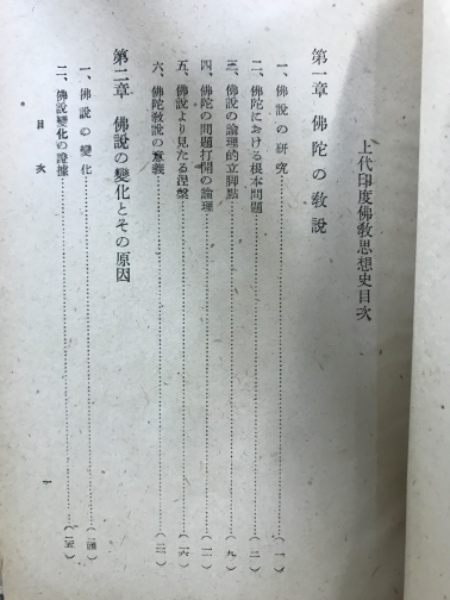 上代印度佛敎思想史目次
第一章 佛陀の敎說
一、佛說の硏究……(一)
二、佛陀における根本問題……(三)
三、佛說の論理的立脚點……(九)
四、佛陀の問題打開の論理……(一一)
五、佛說より見たる涅槃……(一六)
六、佛陀敎說の意義……
第二章 佛說の變化とその原因
一、佛說の變化……
二、佛說變化の證據……(二五)
目次
一